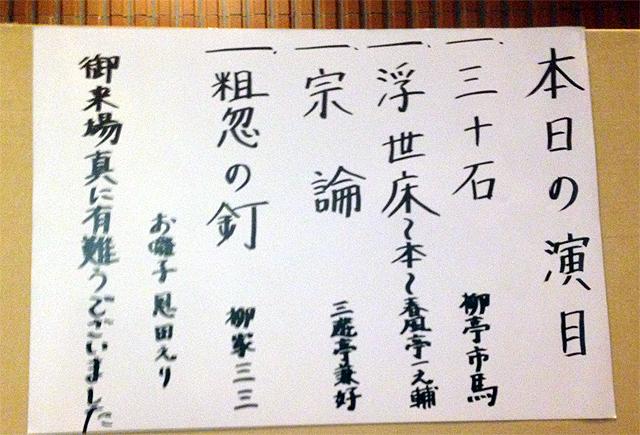 本日の演目
一、三十石 柳亭市馬
一、浮世床〜本〜春風亭一之輔
一、宗論 三遊亭兼好
一、粗忽の釘 柳家三三
お囃子 恩田えり
御来場真に有難うございました